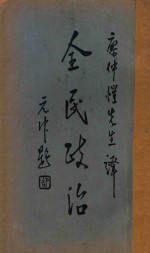 廖仲愷先生譯
全民政治
元冲題